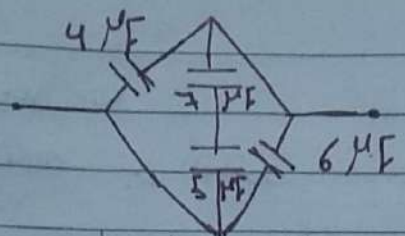 4 μF
7 μF
5 μF
6 μF